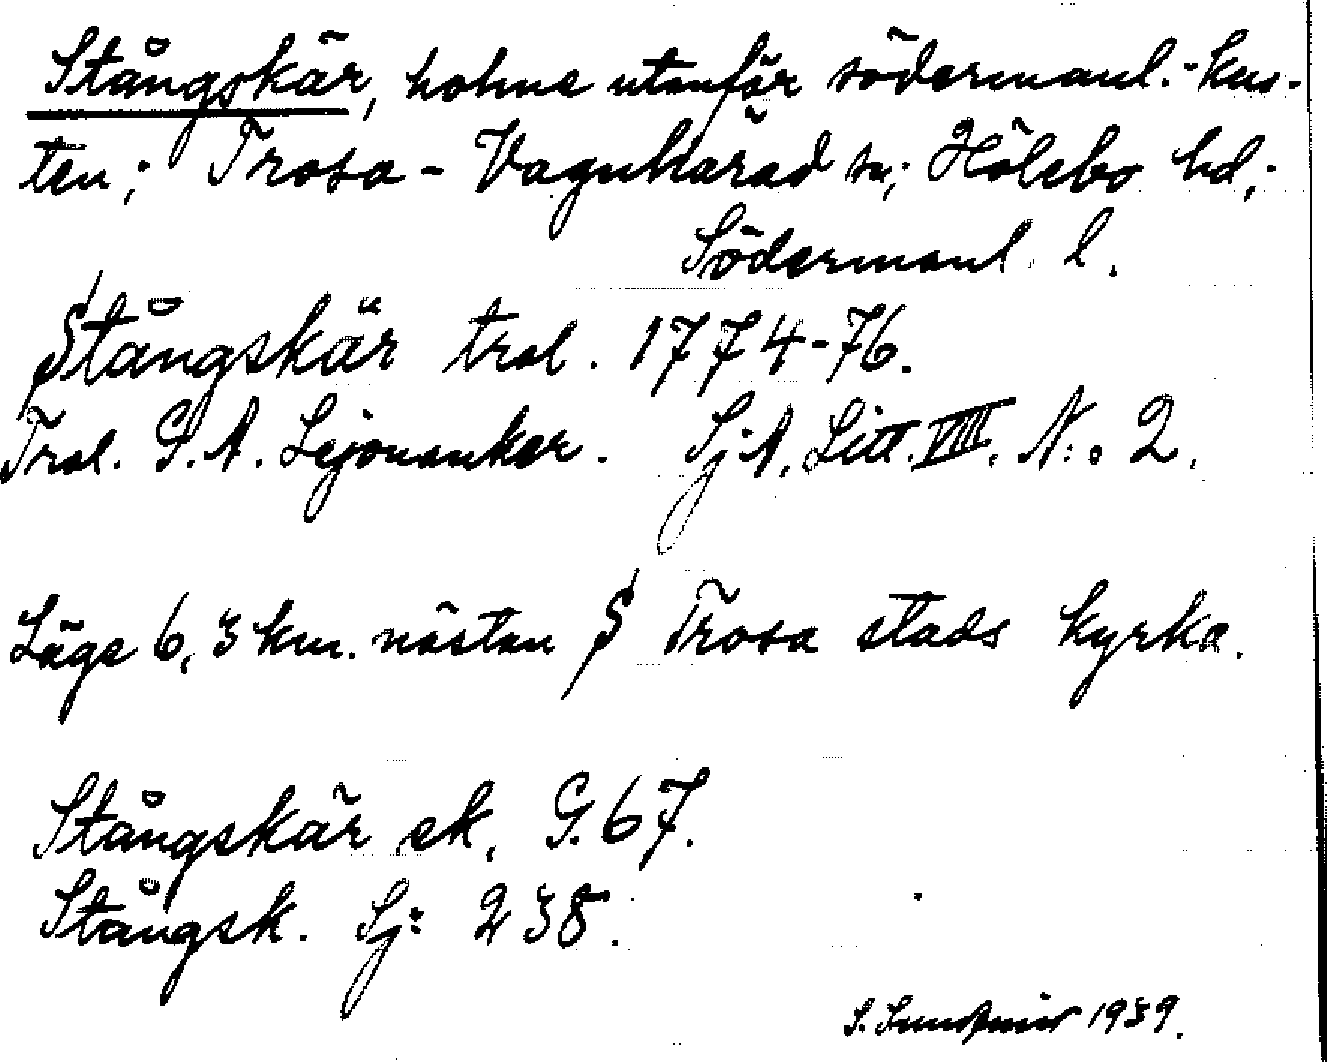 Stångskär, holme utanför södermanl.-kus-
ten; Trosa-Vagnhärad sn; Hölebo hd;
Södermanl. l.
Stångskär trol. 1774-76.
Trol. G. A. Lejonanker. Sj.A. Litt. VIII. N:o 2.
Läge 6,3 km. nästan S Trosa stads kyrka.
Stångskär ek. G. 67.
Stångsk. Sj: 238.
S. 1939.